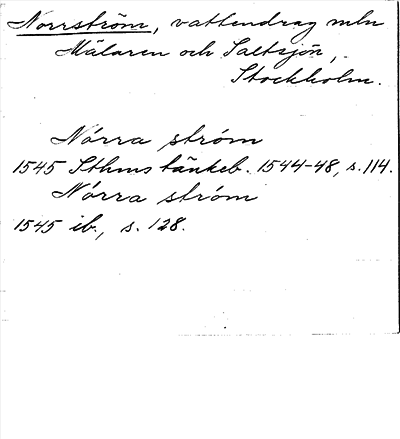 Norrström, vattendrag mln
Mälaren och Saltsjön,
Stockholm.
Nórra ström
1545 Sthms tänkeb. 1544-48, s. 114.
Nórra ström
1545 ib., s. 128.